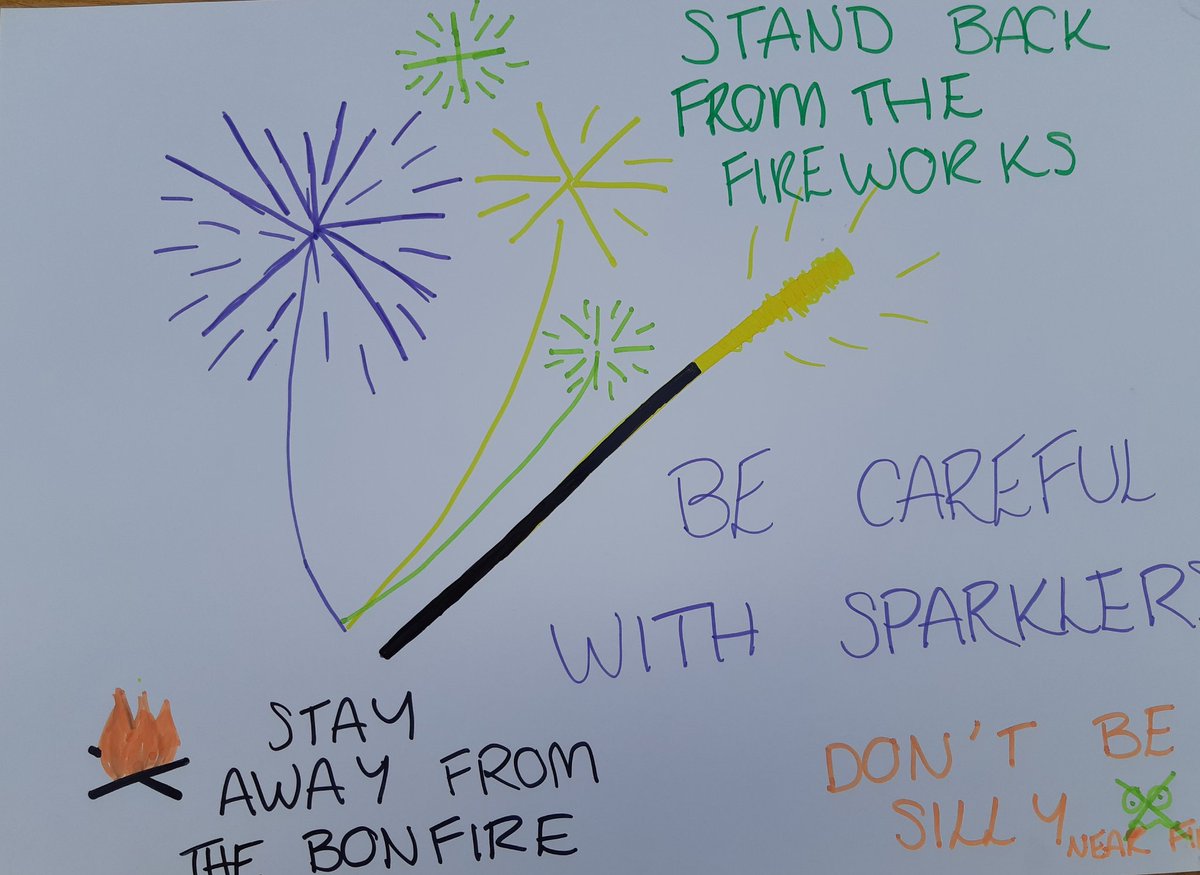 STAND BACK
FROM THE
FIREWORKS
BE CAREFUL
WITH SPARKLERS
STAY
AWAY FROM
THE BONFIRE
DON'T BE
SILLY
NEAR